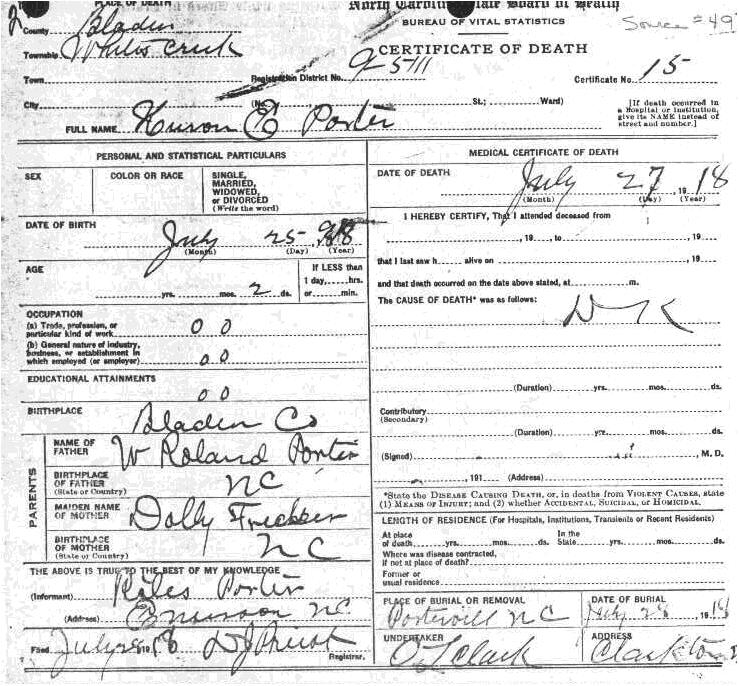 PLACE OF DEATH
North Carolina State Board of Health
BUREAU OF VITAL STATISTICS
Source #49
County Bladen
Township Whites Creek
CERTIFICATE OF DEATH
Town
Registration District No. 9-5111
Certificate No. 15
City
(No.
St.;
Ward)
[If death occurred in
a Hospital or Institution,
give its NAME instead of
street and number.]
FULL NAME E Porter
PERSONAL AND STATISTICAL PARTICULARS
SEX
COLOR OR RACE
SINGLE,
MARRIED,
WIDOWED,
or DIVORCED
(Write the word)
DATE OF BIRTH
July 25, 1918
(Month) (Day) (Year)
AGE
yrs. mos. 2 ds.
If LESS than
1 day, hrs.
or min.
OCCUPATION
(a) Trade, profession, or
particular kind of work 0 0
(b) General nature of industry,
business, or establishment in
which employed (or employer) 0 0
EDUCATIONAL ATTAINMENTS
0 0
BIRTHPLACE
Bladen Co
PARENTS
NAME OF
FATHER W Roland Porter
BIRTHPLACE
OF FATHER
(State or Country) NC
MAIDEN NAME
OF MOTHER Dolly
BIRTHPLACE
OF MOTHER
(State or Country) NC
THE ABOVE IS TRUE TO THE BEST OF MY KNOWLEDGE
(Informant) Porter
(Address) NC
Filed July 28 1918
Registrar.
MEDICAL CERTIFICATE OF DEATH
DATE OF DEATH
July 27, 1918
(Month) (Day) (Year)
I HEREBY CERTIFY, That I attended deceased from
, 19 , to , 19
that I last saw h alive on , 19
and that death occurred on the date above stated, at m.
The CAUSE OF DEATH* was as follows:
D K
(Duration) yrs. mos. ds.
Contributory
(Secondary)
(Duration) yrs. mos. ds.
(Signed) , M. D.
, 191 (Address)
*State the DISEASE CAUSING DEATH, or, in deaths from VIOLENT CAUSES, state
(1) MEANS OF INJURY; and (2) whether ACCIDENTAL, SUICIDAL, or HOMICIDAL.
LENGTH OF RESIDENCE (For Hospitals, Institutions, Transients or Recent Residents)
At place
of death yrs. mos. ds.
In the
State yrs. mos. ds.
Where was disease contracted,
if not at place of death?
Former or
usual residence
PLACE OF BURIAL OR REMOVAL
Porterville NC
DATE OF BURIAL
July 28, 1918
UNDERTAKER
O L Clark
ADDRESS
Clarkton